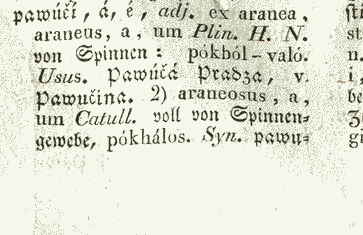 pawúčí, á, é, adj. ex aranea,
araneus, a, um Plin. H. N.
von Spinnen: pókból-való.
Usus. Pawúčá Pradza, v.
Pawučina. 2) araneosus, a,
um Catull. voll von Spinnen-
gewebe, pókhálos. Syn. pawu-